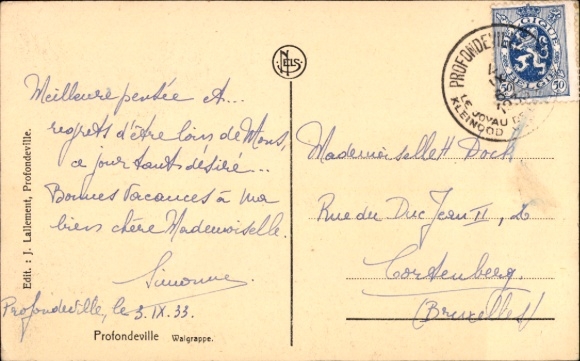 Meilleure pensée et...
regrets d'être loin de Mons,
ce jour tant désiré...
Bonnes Vacances à ma
bien chère Mademoiselle.
Simonne.
Profondeville, le 3.IX.33.
Profondeville Walgrappe.
Edit : J. Lallement, Profondeville.
NELS
BELGIQUE
50 50
BELGIE
PROFONDEVILLE
LE JOYAU
KLEINOOD
Mademoiselle H Dock
Rue du Duc Jean II, 2
Cortenberg.
(Bruxelles)